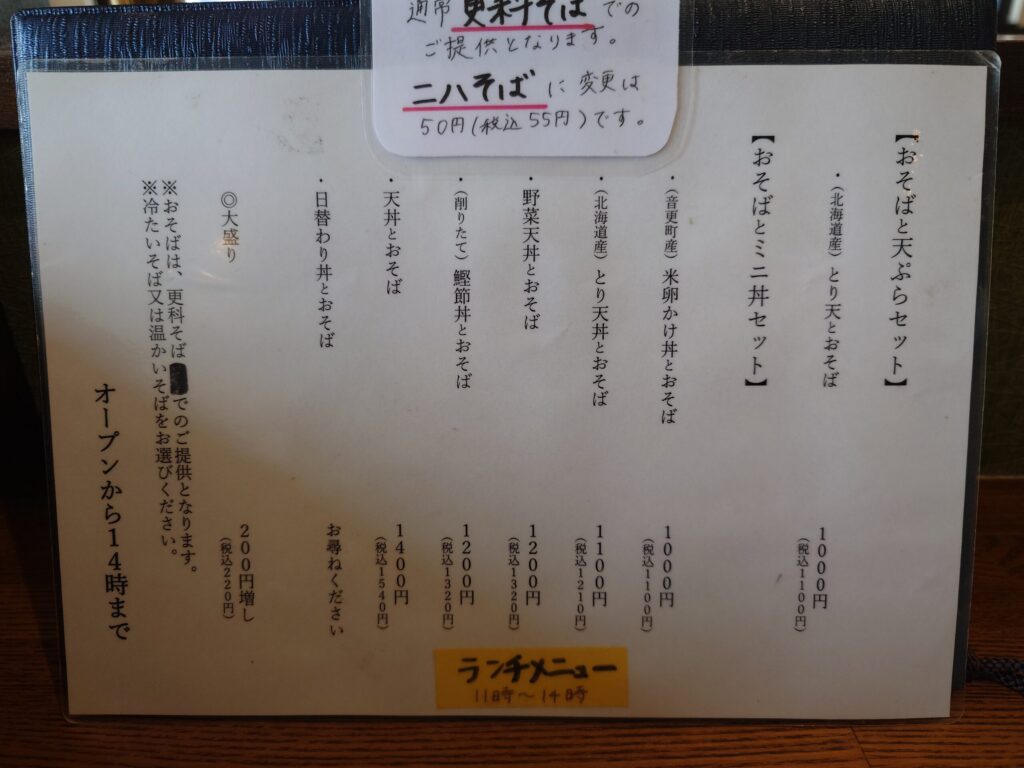 通常 更科そば での
ご提供となります。
二八そば に変更は
50円(税込55円)です。
【おそばと天ぷらセット】
・(北海道産) とり天とおそば 1000円
(税込1100円)
【おそばとミニ丼セット】
・(音更町産) 米卵かけ丼とおそば 1000円
(税込1100円)
・(北海道産) とり天丼とおそば 1100円
(税込1210円)
・野菜天丼とおそば 1200円
(税込1320円)
・(削りたて) 鰹節丼とおそば 1200円
(税込1320円)
・天丼とおそば 1400円
(税込1540円)
・日替わり丼とおそば お尋ねください
◎大盛り 200円増し
(税込220円)
※おそばは、更科そば でのご提供となります。
※冷たいそば又は温かいそばをお選びください。
オープンから14時まで
ランチメニュー
11時〜14時